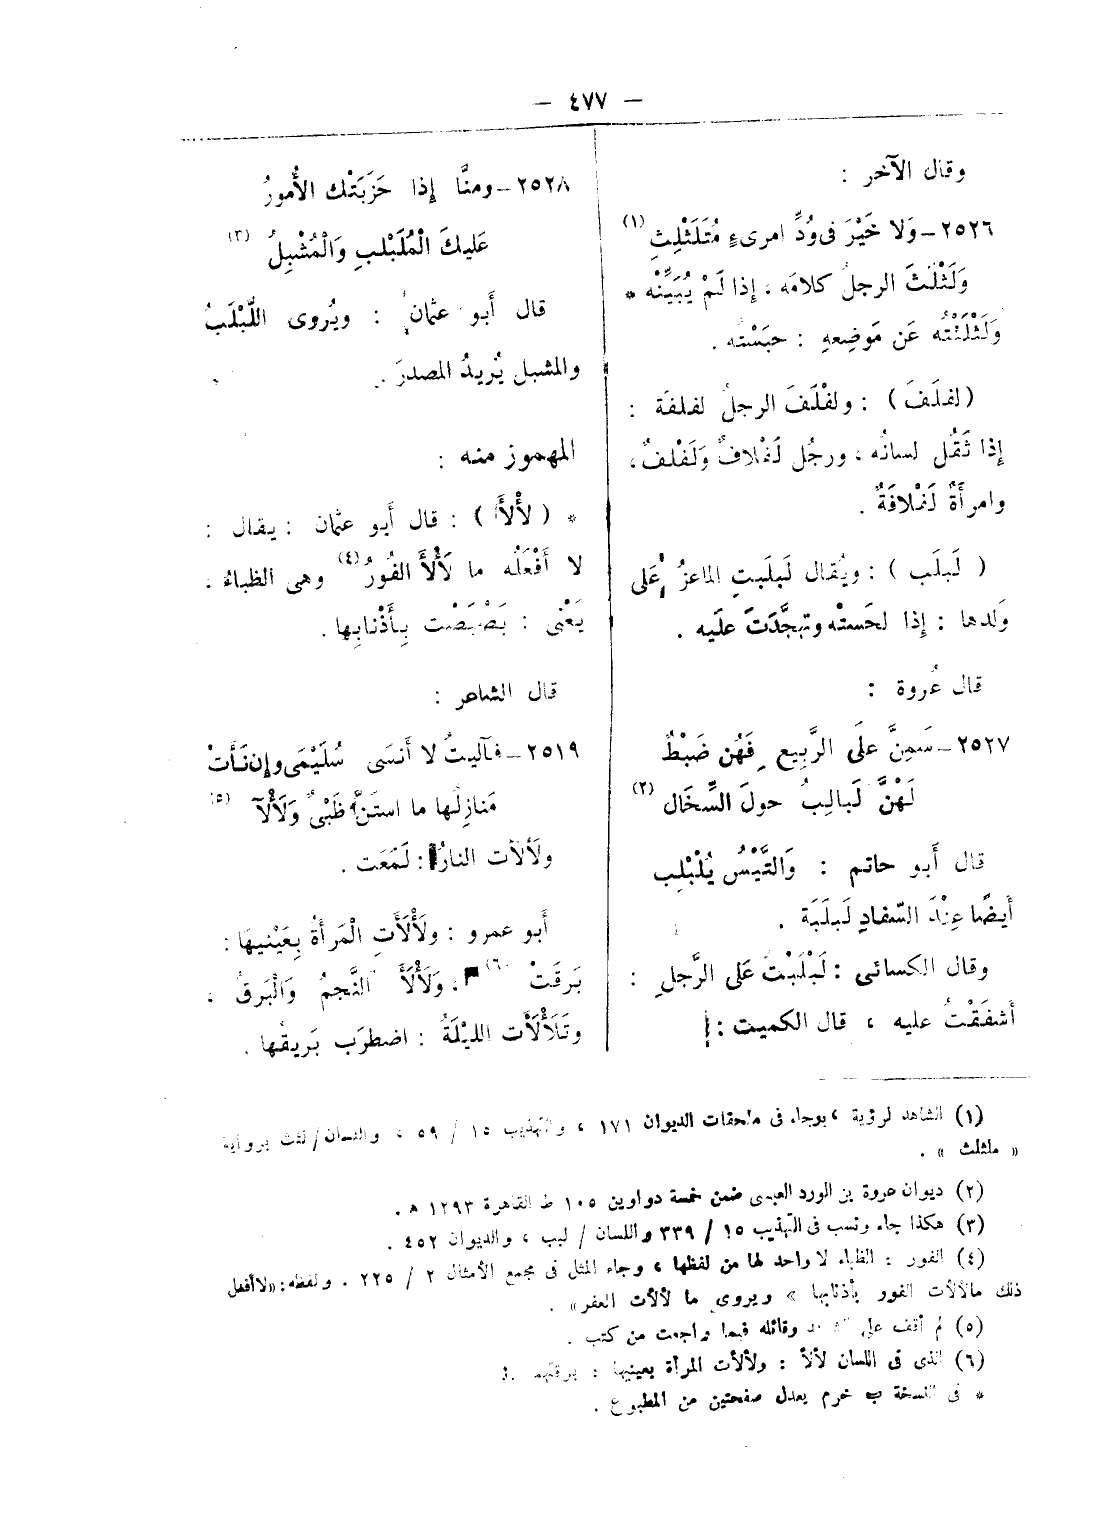 — ٤٧٧ —
وقال الآخر :
٢٥٢٦ – وَلا خَيْرَ فى وُدِّ امرىءٍ مُتَلَثْلِثِ (١)
وَلَثْلَثَ الرجلُ كلامَه ، إذا لَمْ يُبَيِّنْه *
وَلَثْلَثْتُه عَن مَوضِعهِ : حبَسْتُه .
( لفلَفَ ) : ولفْلَفَ الرجلُ لفلفَة :
إذا ثَقُل لسانُه ، ورجُل لَفْلافٌ وَلَفْلفٌ ،
وامرأَةٌ لَفْلافَةٌ .
( لَبلَب ) : ويُقال لَبلَبتِ الماعزُ عَلى
وَلدها : إذا لحَستْه وتبجَّدَتَ علَيه .
قال عُروة :
٢٥٢٧ – سَمِنَّ علَى الرَّبِيع فَهُن ضَبْطٌ
لَهُنَّ لَبالِبُ حولَ السِّخَال (٢)
قال أَبو حاتم : وَالتَّيْسُ يُلَبْلِب
أيضًا عِنْدَ السِّفادِ لَبلَبَة .
وقال الكسائى : لَبْلَبْتُ عَلى الرَّجلِ :
أشفَقْتُ عليه ، قال الكميت :
٢٥٢٨ – ومنَّا إذا حَزَبَتْك الأُمورُ
عَليكَ الْمُلَبْلبِ وَالْمُشْبِلُ (٣)
قال أَبو عثمان : ويُروى اللَّبْلَبُ
والمشبل يُريدُ المصدرَ .
المهموز منه :
* ( لأْلأَ ) : قال أَبو عثمان : يقال :
لا أَفْعَلُه ما لَأْلأَ الفُورُ (٤) وهى الظباءُ ،
يَعْنى : بَصْبَصْت بِأَذْنابِها .
قال الشاعر :
٢٥١٩ – فآليتُ لا أَنسَى سُلَيْمَى وإن نَأَتْ
مَنازِلُها ما استَنَّ ظَبْىٌ وَلَأْلآ (٥)
ولَأْلأَت النارُ : لَمَعَت .
أَبو عمرو : ولَأْلَأَتِ الْمَرأةُ بِعَيْنيها :
بَرقَتْ (٦) ، وَلَأْلَأَ النَّجمُ وَالْبَرقُ ،
وتَلَأْلَأَت الليْلَةُ : اضطرَب بَريقُها .
(١) الشاهد لرؤبة ، وجاء فى ملحقات الديوان ١٧١ ، والتهذيب ١٥ / ٥٩ ، واللسان / لثث برواية
« ملثلث » .
(٢) ديوان عروة بن الورد العبسى ضمن خمسة دواوين ١٠٥ ط القاهرة ١٢٩٣ ه .
(٣) هكذا جاء ونسب فى التهذيب ١٥ / ٣٣٩ واللسان / لبب ، والديوان ٤٥٢ .
(٤) الفور : الظباء لا واحد لها من لفظها ، وجاء المثل فى مجمع الأمثال ٢ / ٢٢٥ . ولفظه : «لا أفعل
ذلك مالألأت الفور بأذنابها » ويروى ما لألأت العفر» .
(٥) لم أقف على وقائله فيما راجعت من كتب .
(٦) الذى فى اللسان لألأ : ولألأت المرأة بعينيها : برقتهما .
* فى النسخة ب خرم يعدل صفحتين من المطبوع .